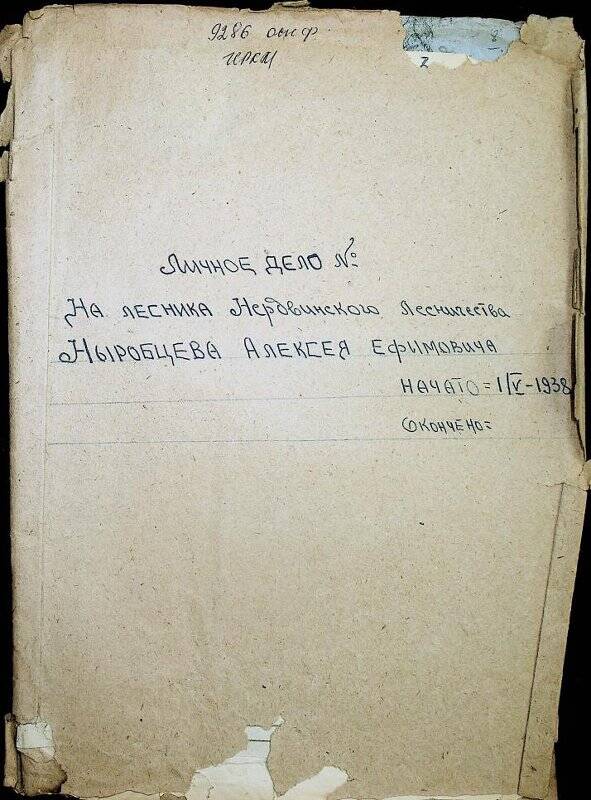 9286 онф
ЧРКМ
8
2
Личное дело №
На лесника Нердвинского лесничества
Ныробцева Алексея Ефимовича
Начато = 1/V-1938
Окончено=